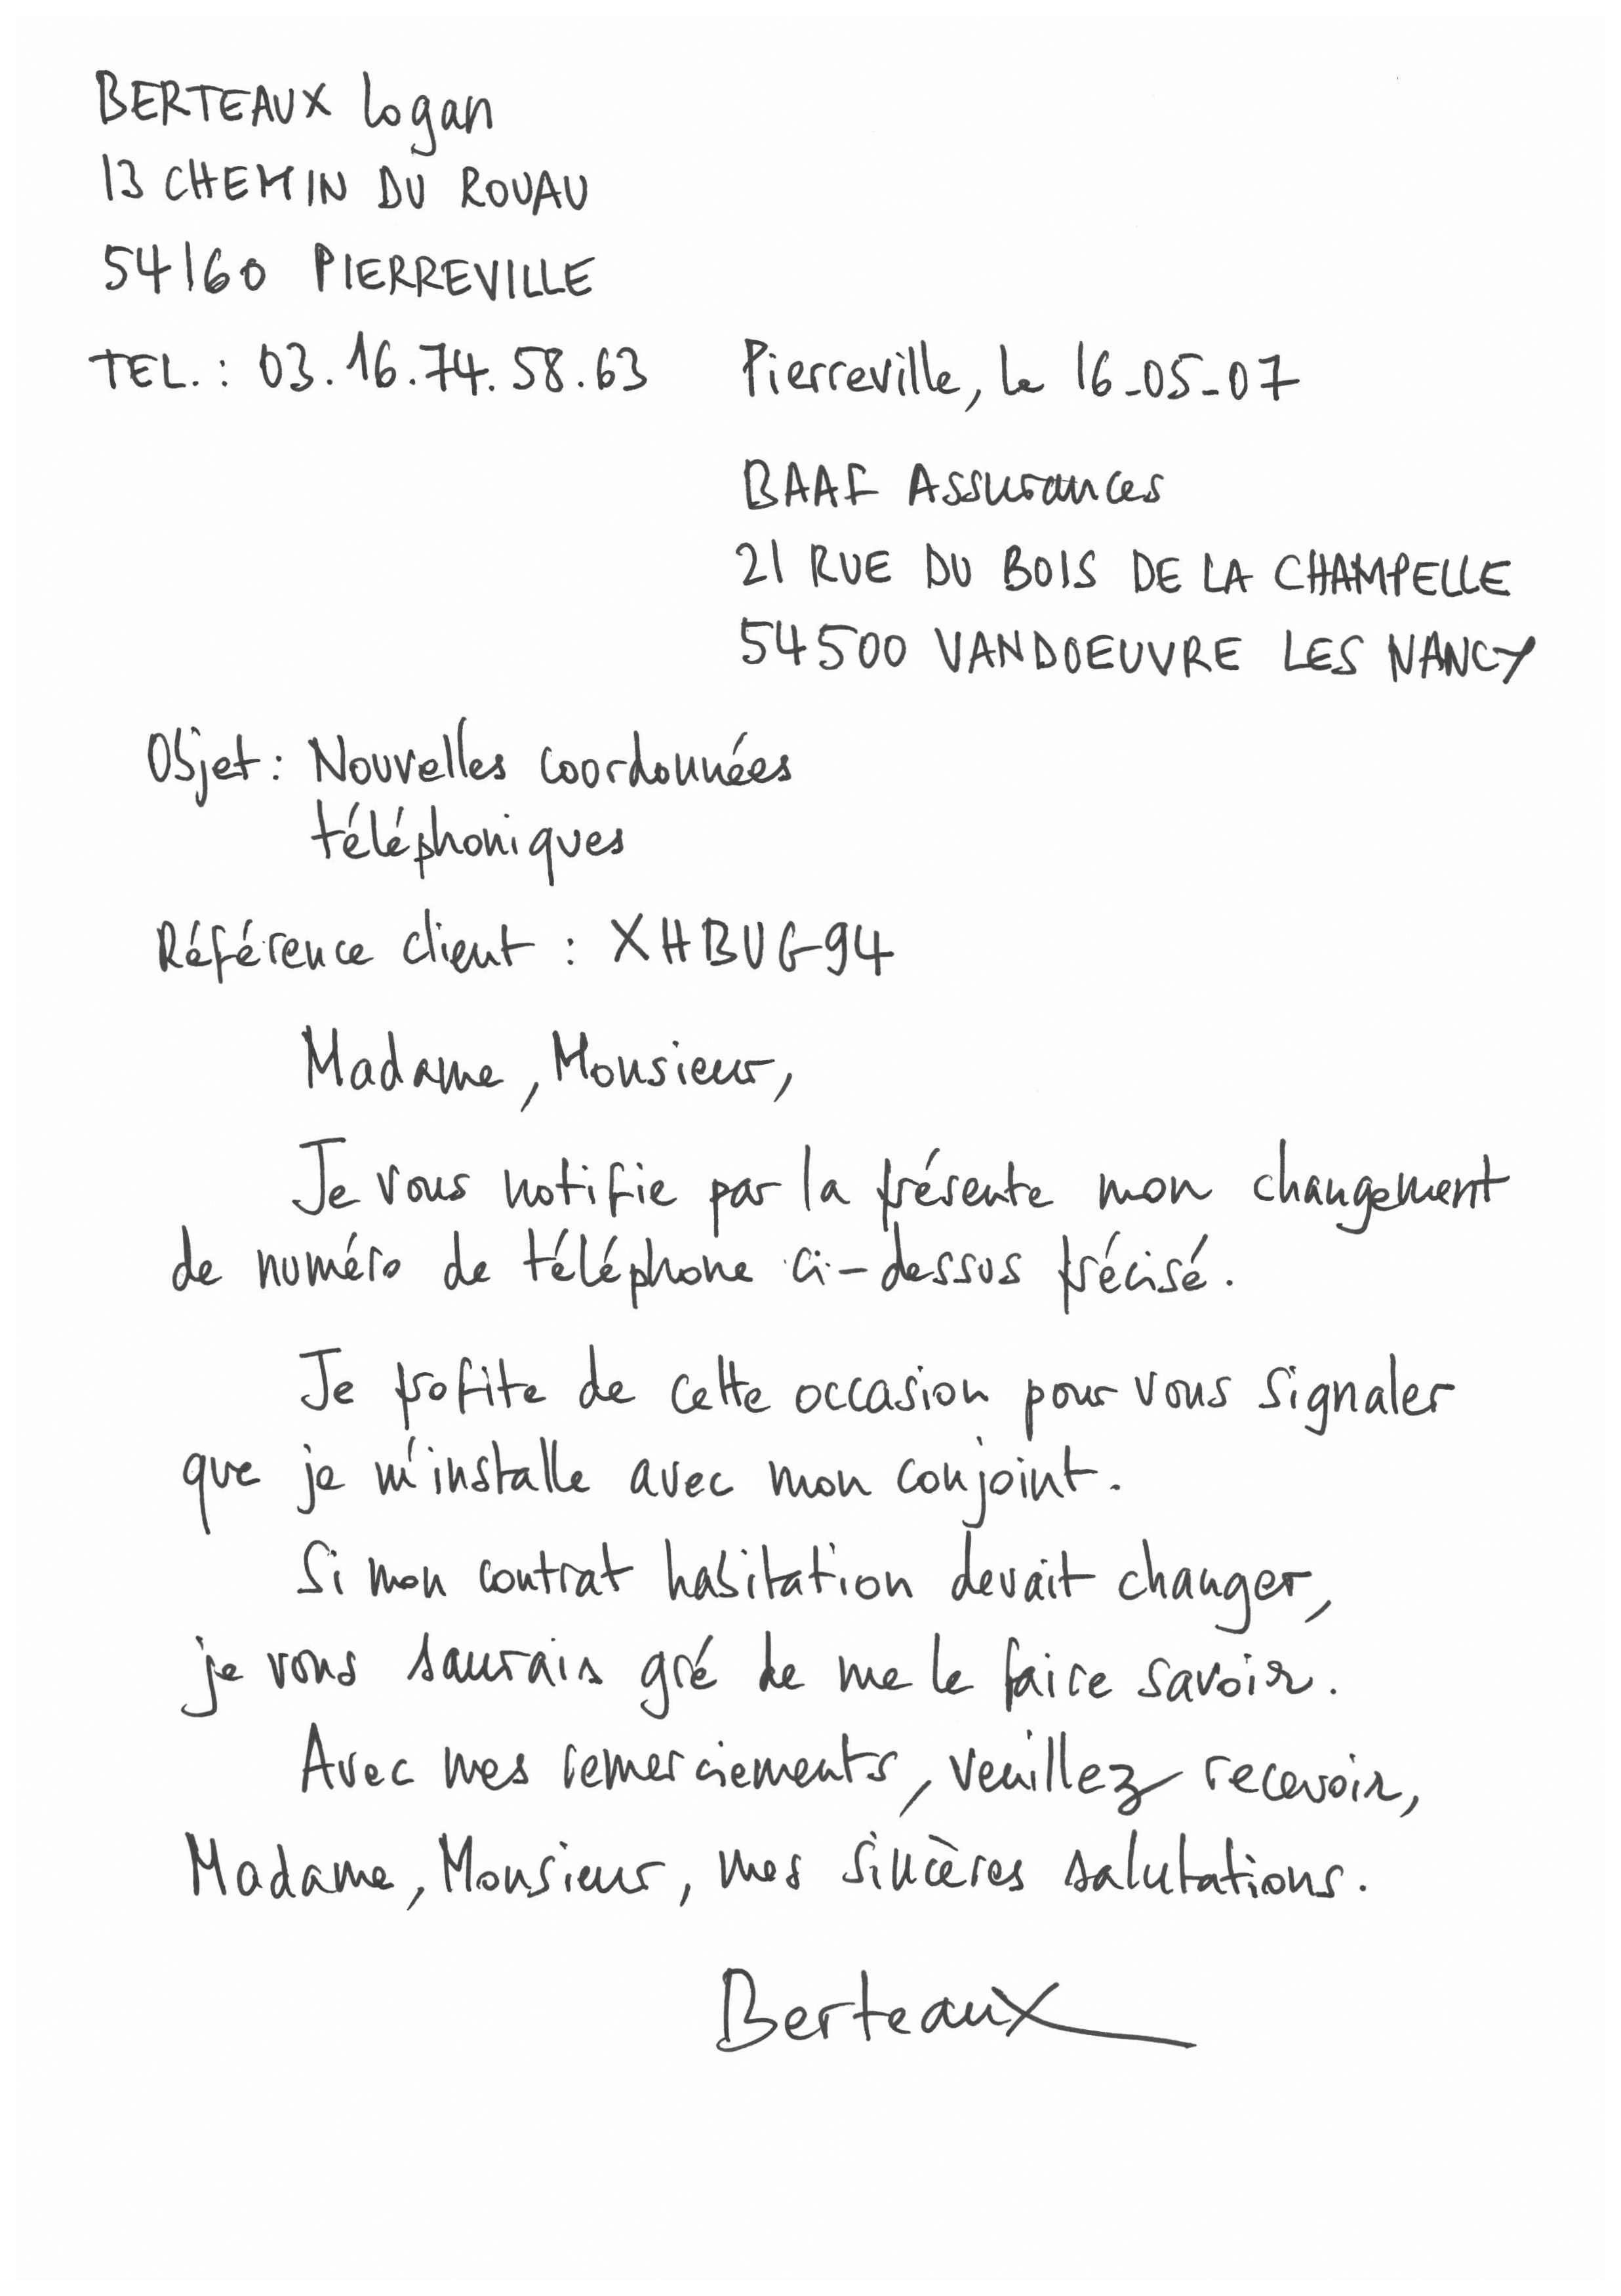 BERTEAUX Logan
13 CHEMIN DU ROUAU
54160 PIERREVILLE
TEL. : 03.16.74.58.63
Pierreville, le 16-05-07
BAAF Assurances
21 RUE DU BOIS DE LA CHAMPELLE
54500 VANDOEUVRE LES NANCY
Objet : Nouvelles coordonnées
téléphoniques
Référence client : XHBUG94
Madame, Monsieur,
Je vous notifie par la présente mon changement
de numéro de téléphone ci-dessus précisé.
Je profite de cette occasion pour vous signaler
que je m'installe avec mon conjoint.
Si mon contrat habitation devait changer,
je vous saurais gré de me le faire savoir.
Avec mes remerciements, veuillez recevoir,
Madame, Monsieur, mes sincères salutations.
Berteaux